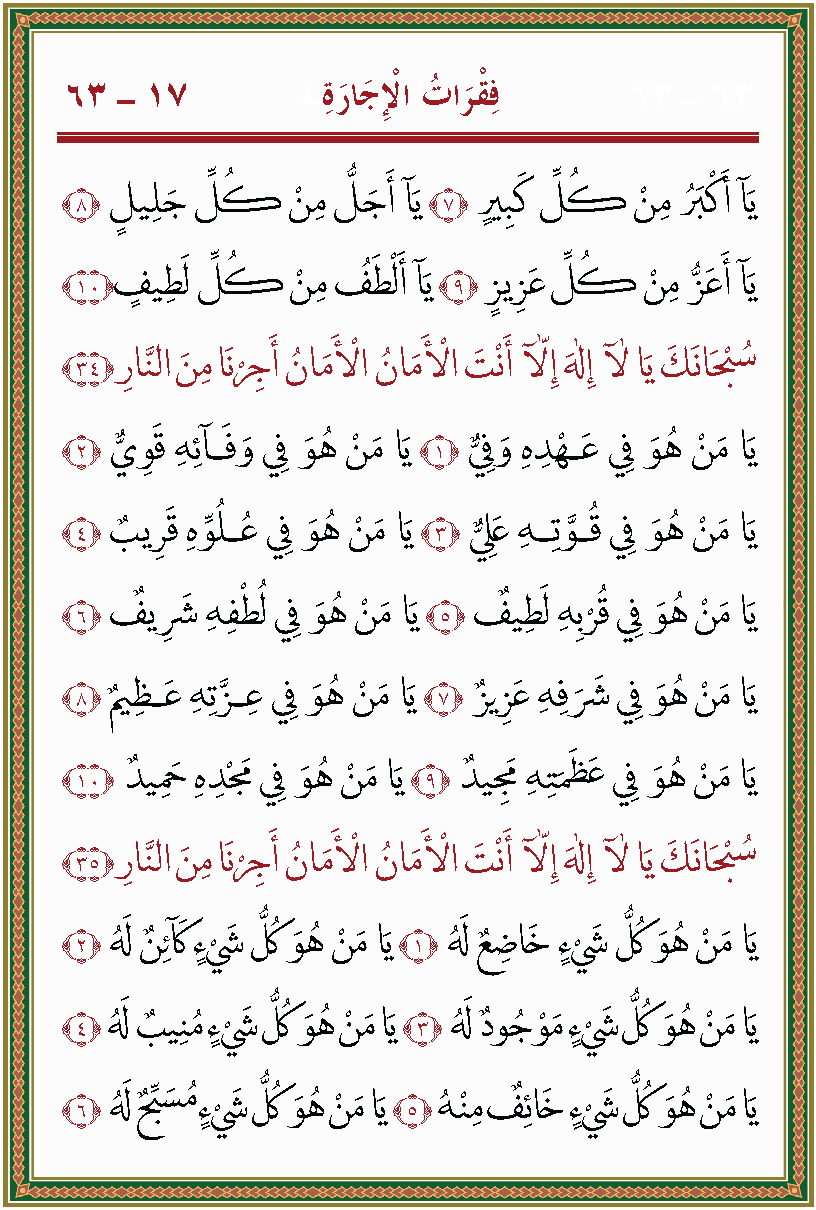 فِقْرَاتُ الْإِجَارَةِ ١٧ – ٦٣
يَآ أَكْبَرُ مِنْ كُلِّ كَبِيرٍ ﴿٧﴾ يَآ أَجَلُّ مِنْ كُلِّ جَلِيلٍ ﴿٨﴾
يَآ أَعَزُّ مِنْ كُلِّ عَزِيزٍ ﴿٩﴾ يَآ أَلْطَفُ مِنْ كُلِّ لَطِيفٍ ﴿١٠﴾
سُبْحَانَكَ يَا لَآ إِلٰهَ إِلَّآ أَنْتَ الْأَمَانُ الْأَمَانُ أَجِرْنَا مِنَ النَّارِ ﴿٣٤﴾
يَا مَنْ هُوَ فِي عَهْدِهِ وَفِيٌّ ﴿١﴾ يَا مَنْ هُوَ فِي وَفَآئِهِ قَوِيٌّ ﴿٢﴾
يَا مَنْ هُوَ فِي قُوَّتِهِ عَلِيٌّ ﴿٣﴾ يَا مَنْ هُوَ فِي عُلُوِّهِ قَرِيبٌ ﴿٤﴾
يَا مَنْ هُوَ فِي قُرْبِهِ لَطِيفٌ ﴿٥﴾ يَا مَنْ هُوَ فِي لُطْفِهِ شَرِيفٌ ﴿٦﴾
يَا مَنْ هُوَ فِي شَرَفِهِ عَزِيزٌ ﴿٧﴾ يَا مَنْ هُوَ فِي عِزَّتِهِ عَظِيمٌ ﴿٨﴾
يَا مَنْ هُوَ فِي عَظَمَتِهِ مَجِيدٌ ﴿٩﴾ يَا مَنْ هُوَ فِي مَجْدِهِ حَمِيدٌ ﴿١٠﴾
سُبْحَانَكَ يَا لَآ إِلٰهَ إِلَّآ أَنْتَ الْأَمَانُ الْأَمَانُ أَجِرْنَا مِنَ النَّارِ ﴿٣٥﴾
يَا مَنْ هُوَ كُلُّ شَيْءٍ خَاضِعٌ لَهُ ﴿١﴾ يَا مَنْ هُوَ كُلُّ شَيْءٍ كَآئِنٌ لَهُ ﴿٢﴾
يَا مَنْ هُوَ كُلُّ شَيْءٍ مَوْجُودٌ لَهُ ﴿٣﴾ يَا مَنْ هُوَ كُلُّ شَيْءٍ مُنِيبٌ لَهُ ﴿٤﴾
يَا مَنْ هُوَ كُلُّ شَيْءٍ خَائِفٌ مِنْهُ ﴿٥﴾ يَا مَنْ هُوَ كُلُّ شَيْءٍ مُسَبِّحٌ لَهُ ﴿٦﴾